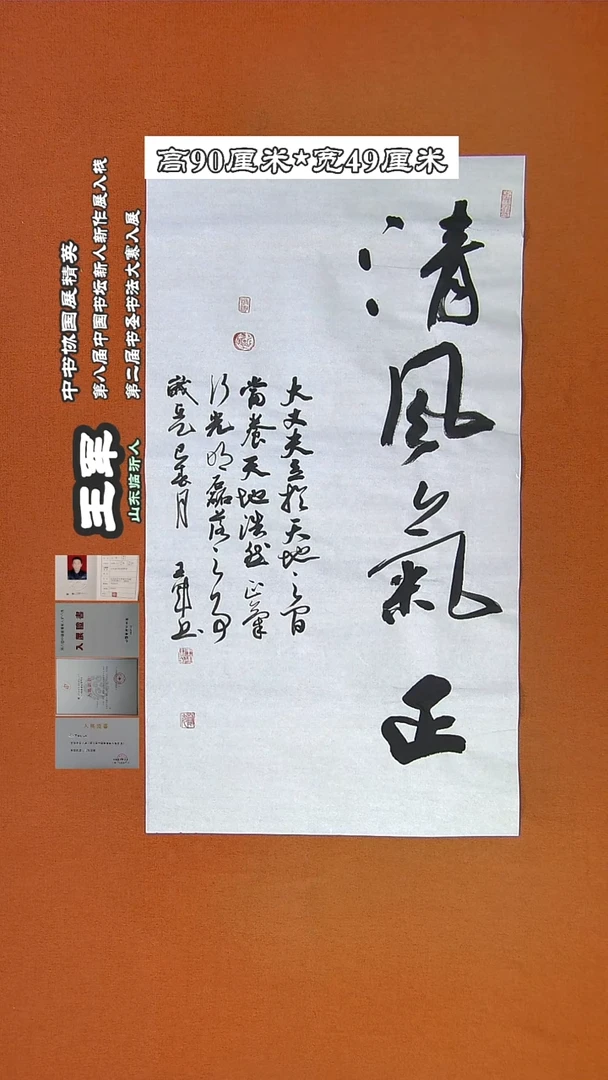 高90厘米*宽49厘米
中书协国展精英
第八届中国书坛新人新作展入展
第二届书圣书法大赛入展
王军
山东临沂人
入展证书
清風氣正
大丈夫立於天地之間
當養天地浩然正氣
行光明磊落之事
誠是
王軍